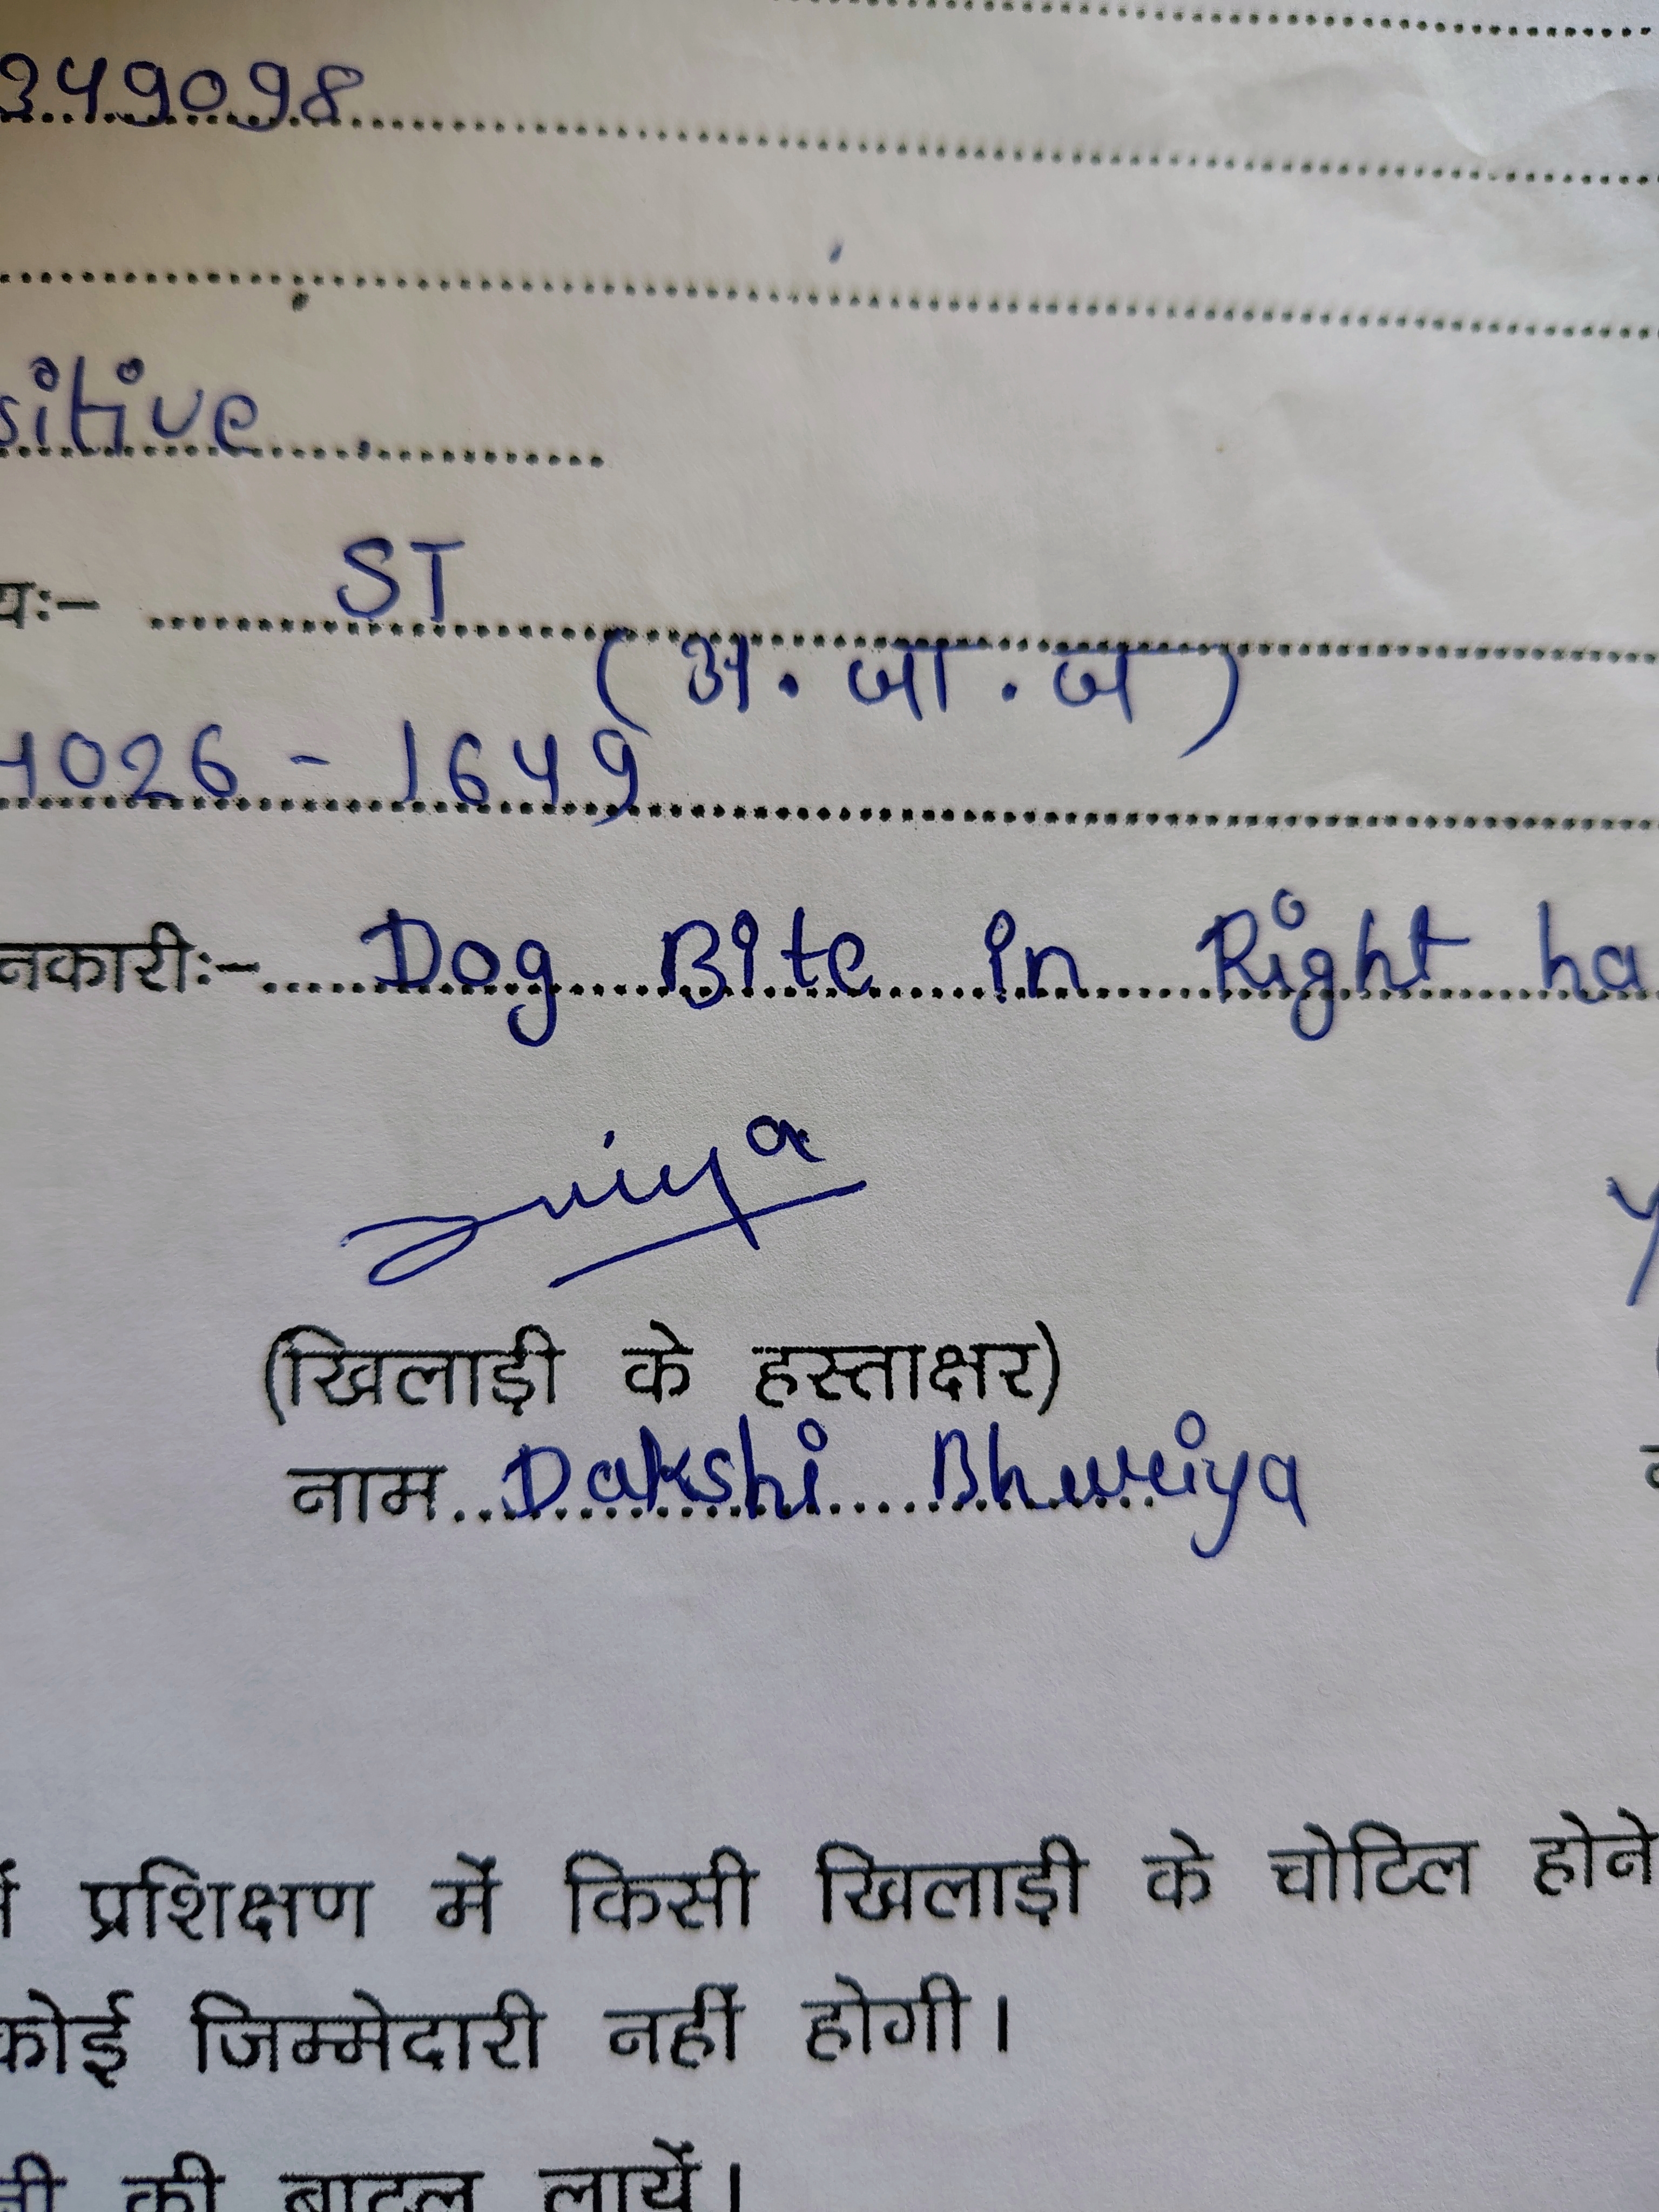 349098
sitive
यः- ST
(अ. जा. ज)
4026 - 1649
नकारीः- Dog Bite in Right ha
(खिलाड़ी के हस्ताक्षर)
नाम Dakshi Bhuriya
प्रशिक्षण में किसी खिलाड़ी के चोटिल होने
कोई जिम्मेदारी नहीं होगी।
की बाटल लायें।